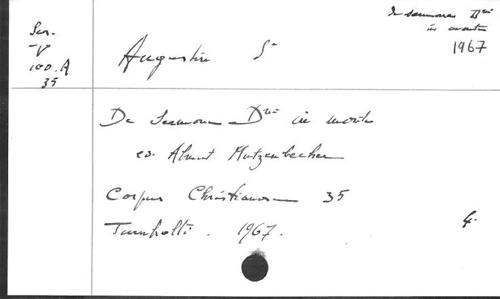 De sermone Dni
in monte
1967
Ser.
V
100.A
35
Augustin S
De Sermone Dni in monte
ed. Almut Mutzenbecher
Corpus Christianor 35
Turnholti. 1967.
4.